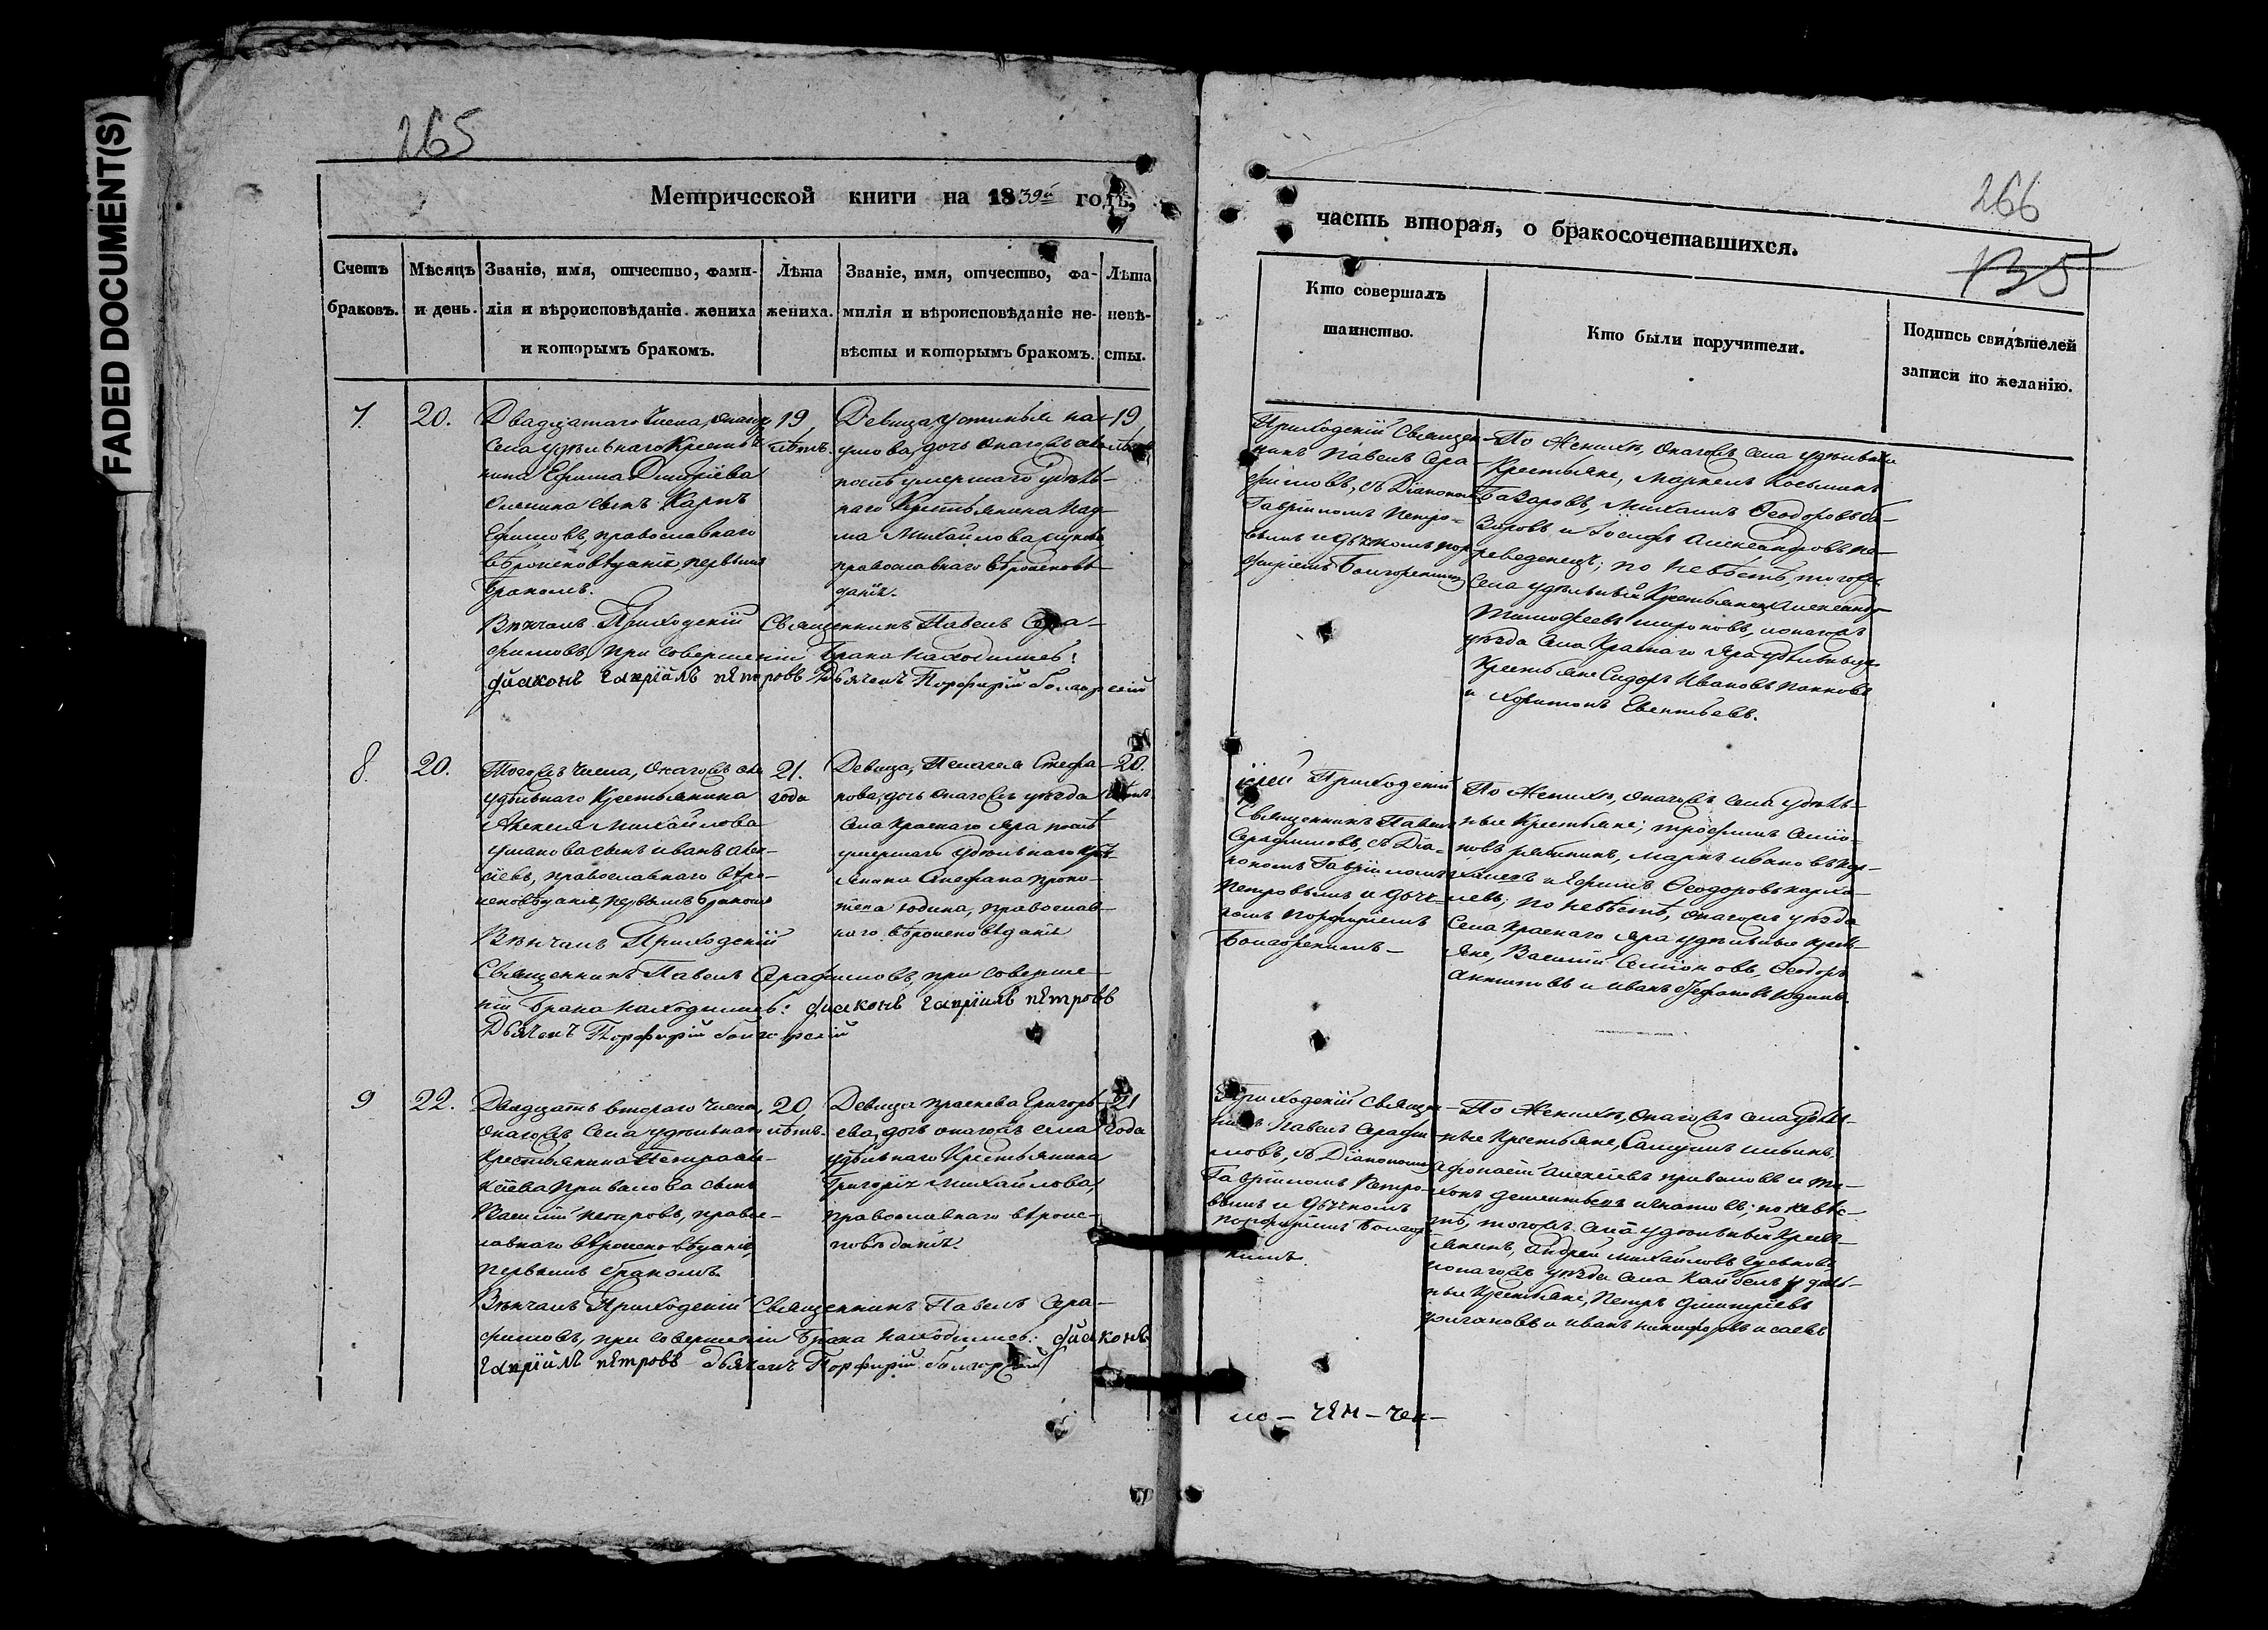 FADED DOCUMENT(S)
265
Метрической книги на 1839й годъ,
Счетъ браковъ.
Мѣсяцъ и день.
Званіе, имя, отчество, фами-
лія и вѣроисповѣданіе жениха
и которымъ бракомъ.
Лѣта жениха.
Званіе, имя, отчество, фа-
милія и вѣроисповѣданіе не-
вѣсты и которымъ бракомъ.
Лѣта невѣ-
сты.
7.
20.
Двадцатаго числа, онагожъ
села удѣльнаго Крестья-
нина Ефима Дмитріева
сынъ Карпъ
Ефимовъ, православнаго
вѣроисповѣданія первымъ
бракомъ.
19
лѣтъ.
Девица, устинья на-
умова, дочь онагожъ села
послѣ умершаго удѣль-
наго Крестьянина Нау-
ма Михайлова
православнаго вѣроисповѣ-
данія.
19
Вѣнчалъ Приходскій Священникъ Павелъ Сера-
фимовъ, при совершеніи брака находились:
діаконъ гавріилъ пѣтровъ Дьячекъ Порфирій
8.
20.
Тогожъ числа, онагожъ села
удѣльнаго Крестьянина
Алексея Михайлова
сынъ иванъ алек-
сѣевъ, православнаго вѣро-
исповѣданія, первымъ бракомъ
21.
года
Девица, Пелагея Стефа-
нова, дочь онагожъ уѣзда
села Краснаго Яра послѣ
умершаго удѣльнаго крест-
янина Стефана проко-
пьева юдина, православ-
наго вѣроисповѣданія
20.
лѣтъ
Вѣнчалъ Приходскій
Священникъ Павелъ Серафимовъ, при соверше-
ніи брака находились: діаконъ гавріилъ пѣтровъ
Дьячекъ Порфирій
9
22.
Двадцать втораго числа,
онагожъ села удѣльнаго
крестьянина Петра але-
ксіева Привалова сынъ
Василій петровъ, право-
славнаго вѣроисповѣданія,
первымъ бракомъ.
20
лѣтъ.
Девица праскева Григорь-
ева, дочь онагожъ села
удѣльнаго Крестьянина
Григорія Михайлова,
православнаго вѣроис-
повѣданія.
21
года
Вѣнчалъ Приходскій Священникъ Павелъ Сера-
фимовъ, при совершеніи брака находились: діаконъ
гавріилъ пѣтровъ Дьячекъ Порфирій
266
135
часть вторая, о бракосочетавшихся.
Кто совершалъ
таинство.
Кто были поручители.
Подпись свидѣтелей
записи по желанію.
Приходскій Священ-
никъ Павелъ Сера-
фимовъ, съ Діакономъ
Гавріиломъ Петро-
вымъ и дьячкомъ пор-
фиріемъ
По Женихѣ, онагожъ села удѣльные
Крестьяне, Маркелъ Косьминъ
Базаровъ, Михаилъ Ѳеодоровъ ба-
заровъ и Іосифъ Александровъ пе-
реведенецъ; по невѣстѣ, тогожъ
села удѣльный Крестьянинъ Александръ
Тимофеевъ мироновъ, и онагожъ
уѣзда села Краснаго Яра удѣльные
Крестьяне Сидоръ Ивановъ
и Харитонъ
Приходскій
Священникъ Павелъ
Серафимовъ, съ Діа-
кономъ Гавріиломъ
Петровымъ и дьяч-
комъ порфиріемъ
По Женихѣ, онагожъ села удѣль-
ные Крестьяне; трофимъ Семіо-
новъ, маркъ ивановъ
и Ефимъ Ѳеодоровъ
по невѣстѣ, онагожъ уѣзда
Села Краснаго Яра удѣльные крест-
яне, Василій Семіоновъ, Ѳеодоръ
и иванъ Стефановъ юдинъ.
Приходскій Священ-
никъ Павелъ Серафи-
мовъ, съ Діакономъ
Гавріиломъ Петро-
вымъ и дьячкомъ
порфиріемъ
По Женихѣ, онагожъ села удѣль-
ные Крестьяне, Самуилъ
афонасій алексіевъ приваловъ и ти-
хонъ игнатовъ; по невѣс-
тѣ, тогожъ села удѣльный крест-
янинъ, андрей михайловъ
и онагожъ уѣзда села Кайбелъ удѣль-
ные крестьяне, петръ дмитріевъ
и иванъ никифоровъ исаевъ